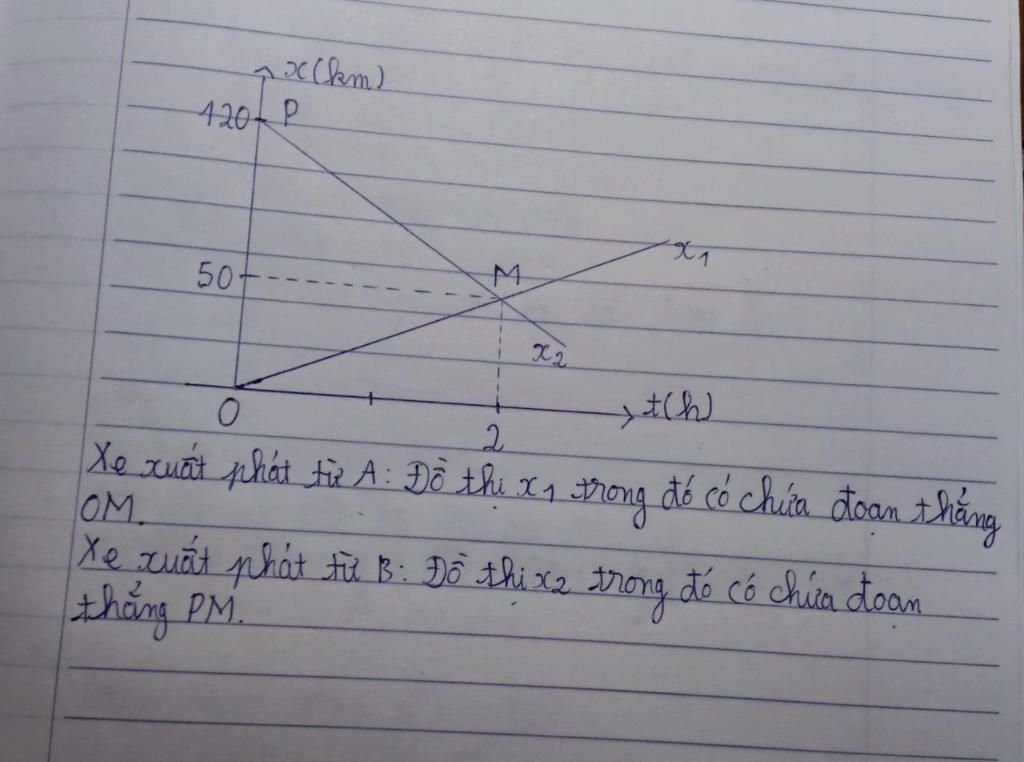 x(km)
120 P
x1
50 M
x2
O t(h)
2
Xe xuất phát từ A: Đồ thị x1 trong đó có chứa đoạn thẳng
OM.
Xe xuất phát từ B: Đồ thị x2 trong đó có chứa đoạn
thẳng PM.